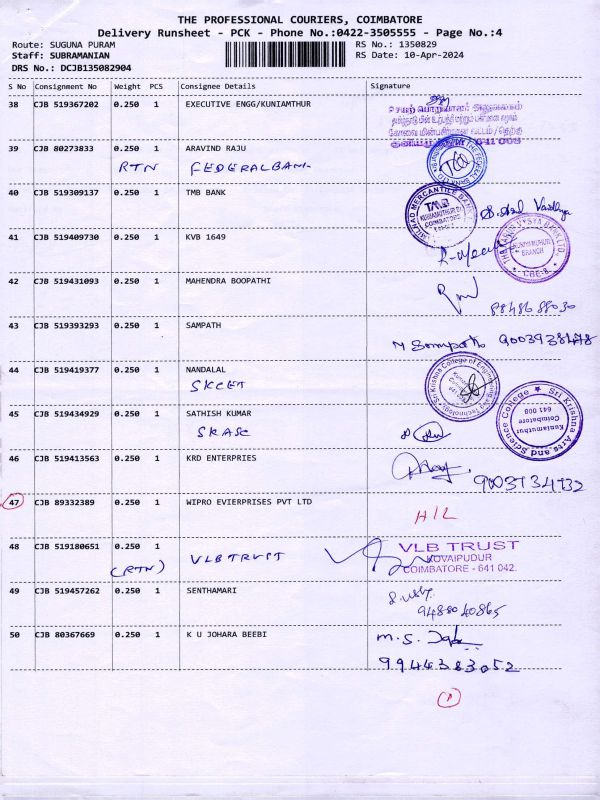 THE PROFESSIONAL COURIERS, COIMBATORE
Delivery Runsheet - PCK - Phone No.:0422-3505555 - Page No.:4
Route: SUGUNA PURAM RS No.: 1350829
Staff: SUBRAMANIAN RS Date: 10-Apr-2024
DRS No.: DCJB135082904
S No Consignment No Weight PCS Consignee Details Signature
38 CJB 519367202 0.250 1 EXECUTIVE ENGG/KUNIAMTHUR
39 CJB 80273833 0.250 1 ARAVIND RAJU
RTN FEDERAL BANK
40 CJB 519309137 0.250 1 TMB BANK
TMB
COIMBATORE
41 CJB 519409730 0.250 1 KVB 1649
BRANCH
CBE-8
42 CJB 519431093 0.250 1 MAHENDRA BOOPATHI
43 CJB 519393293 0.250 1 SAMPATH
44 CJB 519419377 0.250 1 NANDALAL
SKCET
Sri Krishna College of Engineering and Technology
45 CJB 519434929 0.250 1 SATHISH KUMAR
SKASC
Sri Krishna Arts and Science College
Kuniamuthur
Coimbatore
641 008
46 CJB 519413563 0.250 1 KRD ENTERPRIES
47 CJB 89332389 0.250 1 WIPRO EVIERPRISES PVT LTD
H/L
48 CJB 519180651 0.250 1
(RTN) VLB TRUST
VLB TRUST
KOVAIPUDUR
COIMBATORE - 641 042.
49 CJB 519457262 0.250 1 SENTHAMARI
9488040865
50 CJB 80367669 0.250 1 K U JOHARA BEEBI
9944383052